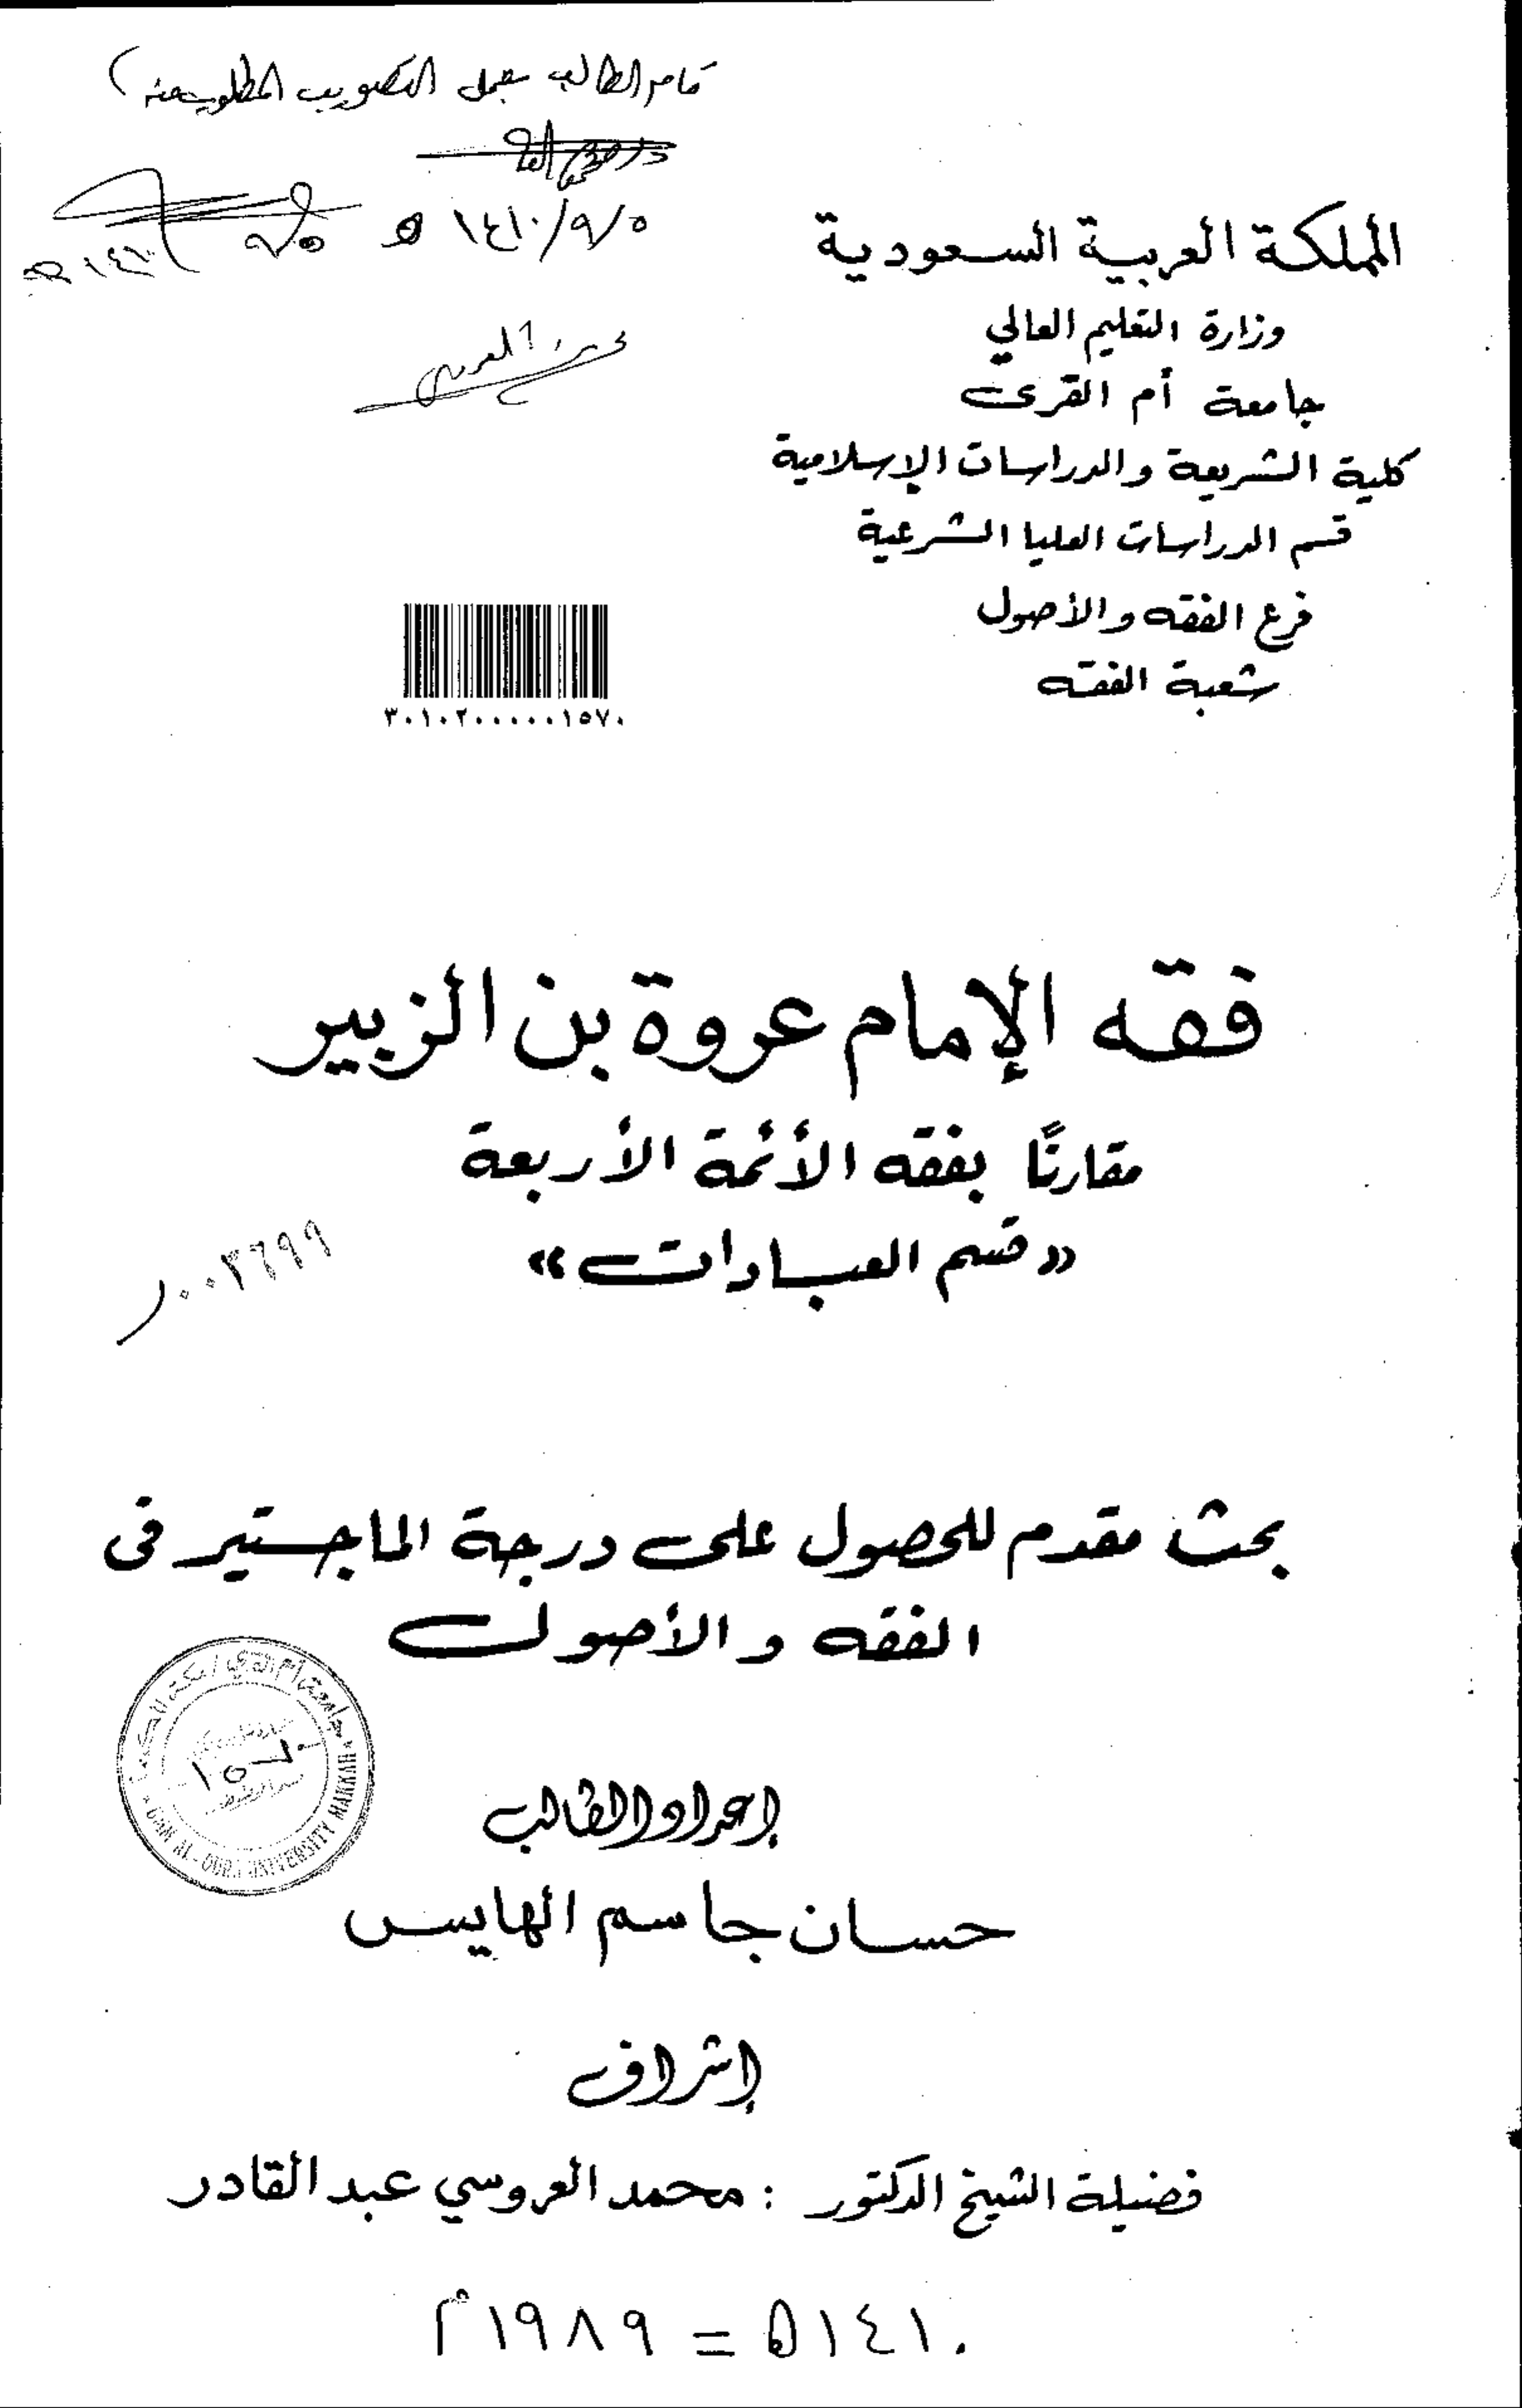 قام الطالب بعمل التصويب المطلوب منه
١٤١٠/٩/٥ هـ
المملكة العربية السعودية
وزارة التعليم العالي
جامعة أم القرى
كلية الشريعة والدراسات الإسلامية
قسم الدراسات العليا الشرعية
فرع الفقه والأصول
شعبة الفقه
٣٠١٠٢٠٠٠٠٠١٥٧٠
فقه الإمام عروة بن الزبير
مقارنًا بفقه الأئمة الأربعة
«قسم العبادات»
بحث مقدم للحصول على درجة الماجستير فى
الفقه والأصول
UMM AL-QURA UNIVERSITY MAKKAH
١٥٧٠
إعداد الطالب
حسان جاسم الهايس
إشراف
فضيلة الشيخ الدكتور : محمد العروسي عبد القادر
١٤١٠ هـ = ١٩٨٩ م